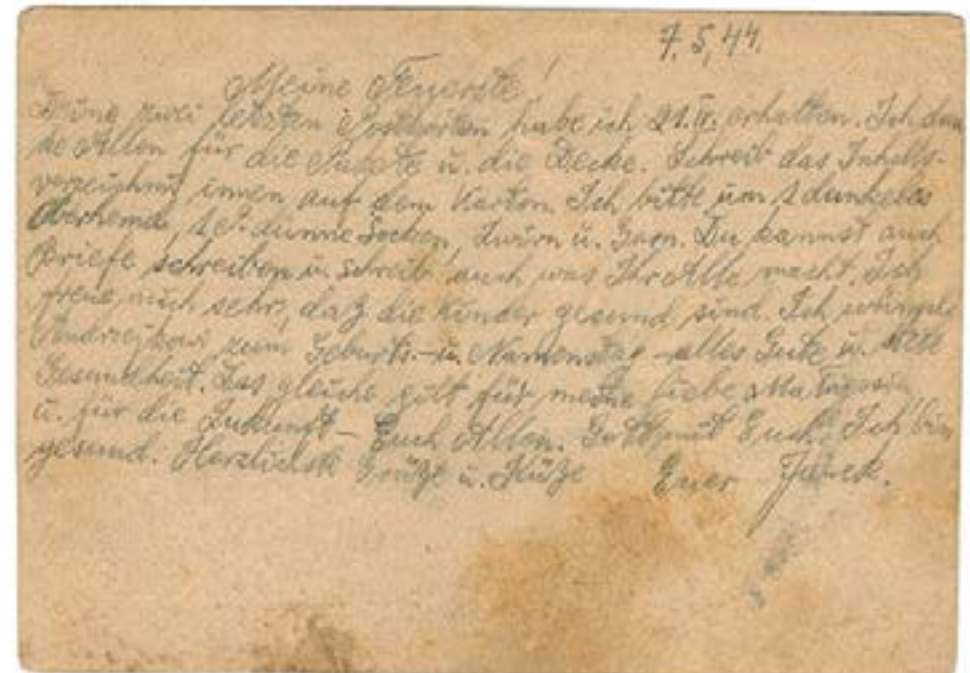 7.5,44.
Meine Teuerste!
Deine zwei letzten Postkarten habe ich 21.IV. erhalten. Ich dan
ke Allen für die Pakete u. die Decke. Schreib das Inhalts-
verzeichnis innen auf dem Karton. Ich bitte um 1 dunkeles
Oberhemd, dünne Socken, Zwirn u. Garn. Du kannst auch
Briefe schreiben u. schreib auch was Ihr Alle macht. Ich
freue mich sehr, daß die Kinder gesund sind. Ich wünsche
Andrzejkowi zum Geburts- u. Namenstag - alles Gute u.
Gesundheit. Das gleiche gilt für meine liebe
u. für die Zukunft - Euch Allen. Gott mit Euch! Ich bin
gesund. Herzlichste Grüße u. Küße Euer Janek.